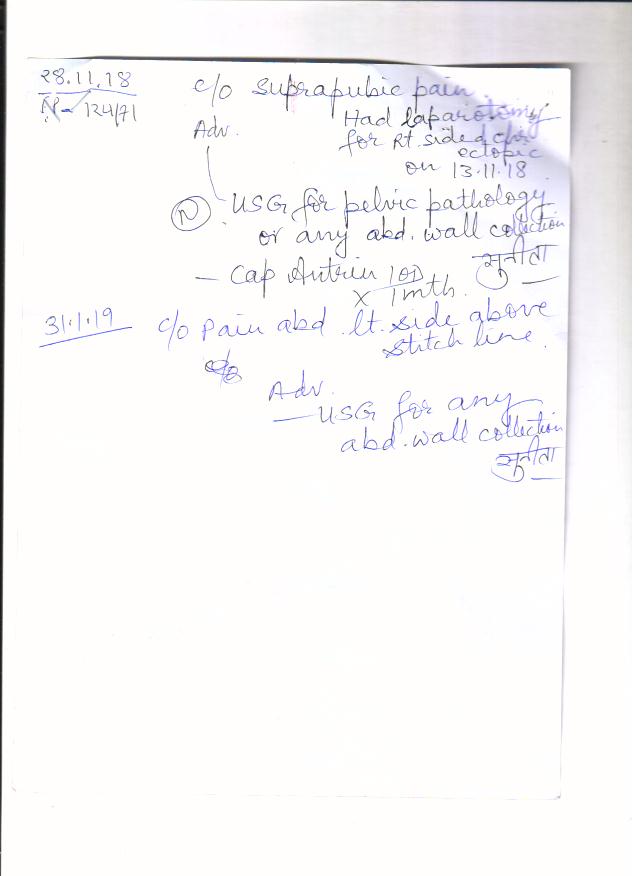 28.11.18
N - 124/71
c/o suprapubic pain.
Had laparotomy
for Rt. sided
ectopic
on 13.11.18
Adv.
N USG for pelvic pathology
or any abd. wall collection
सुनीता
- Cap 1 OD
x 1 mth.
31.1.19
c/o Pain abd. lt. side above
stitch line.
Adv.
- USG for any
abd. wall collection
सुनीता